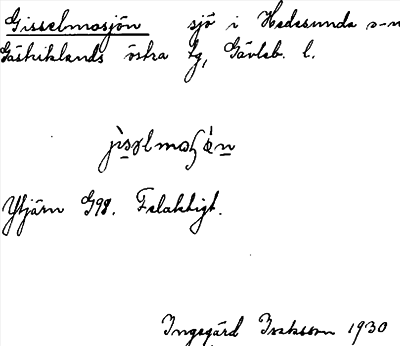 Gisselmosjön sjö i Hedesunda s-n
Gästriklands östra tg, Gävleb. l.
Ytjärn G98. Felaktigt.
Ingegärd Isaksson 1930